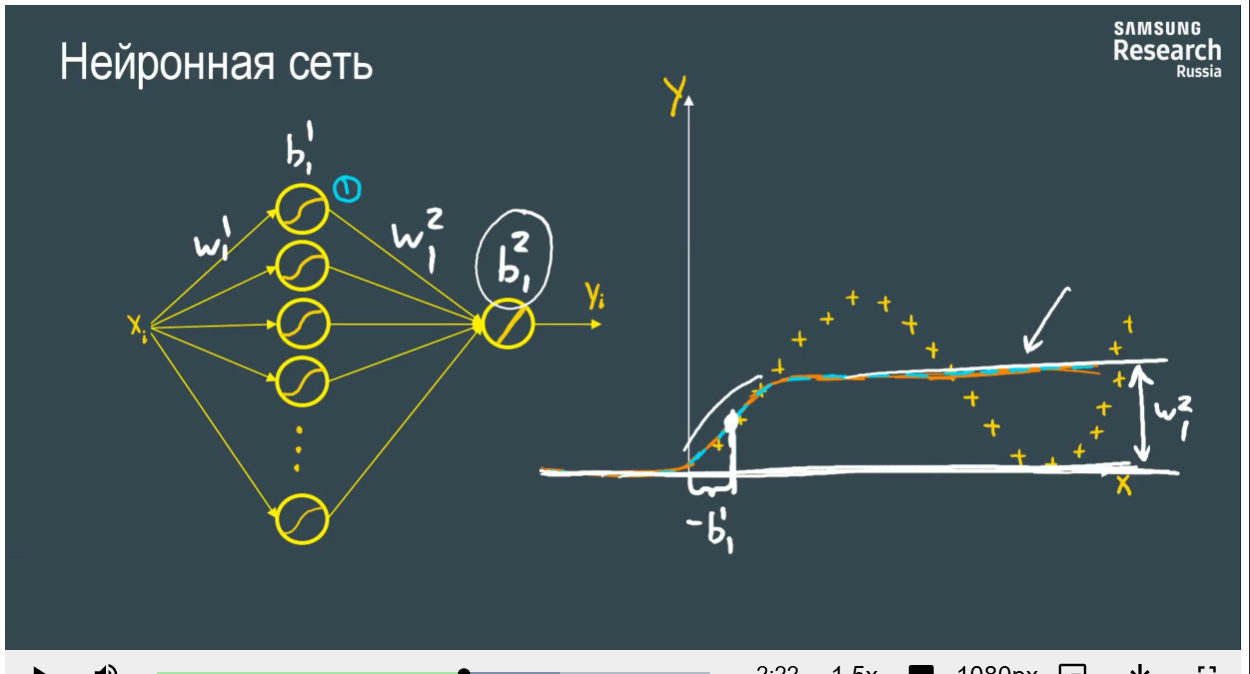 Нейронная сеть
SAMSUNG
Research
Russia
Y
b₁¹
①
w₁¹
w₁²
b₁²
xᵢ
yᵢ
w₁²
x
-b₁¹
2:22 1.5x 1080px